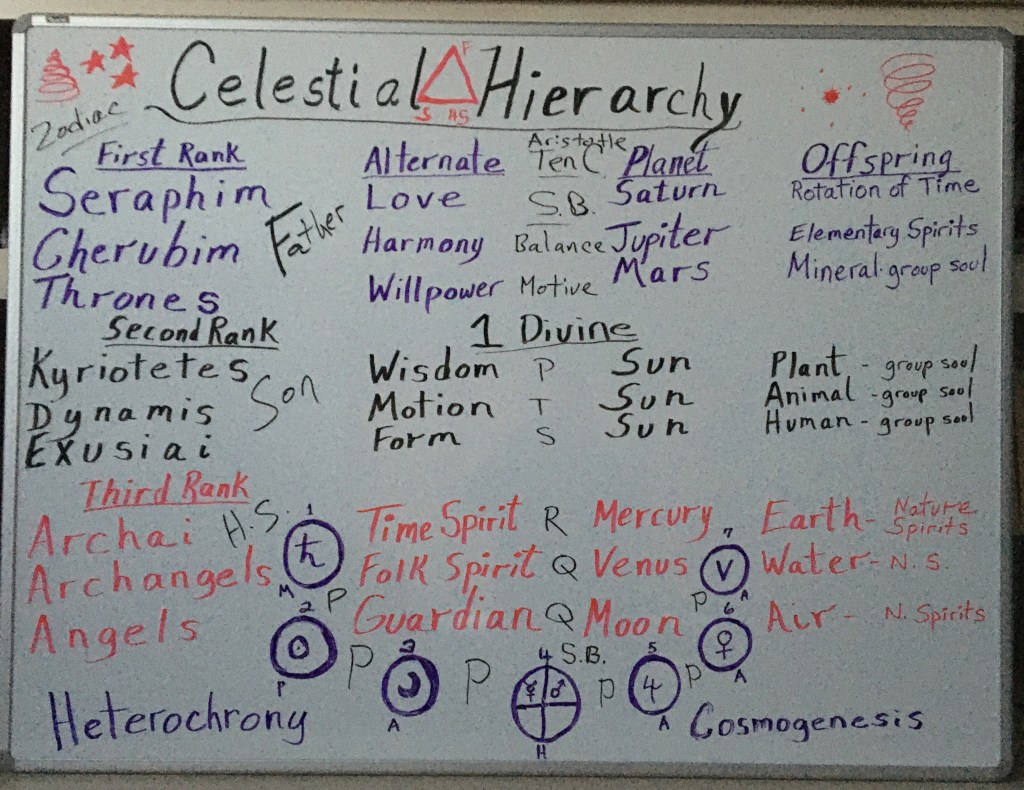 Celestial Hierarchy
F
S HS
Zodiac
First Rank Alternate Aristotle Ten C Planet Offspring
Seraphim Love S.B. Saturn Rotation of Time
Father
Cherubim Harmony Balance Jupiter Elementary Spirits
Thrones Willpower Motive Mars Mineral-group soul
Second Rank 1 Divine
Kyriotetes Wisdom P Sun Plant - group soul
Son
Dynamis Motion T Sun Animal - group soul
Exusiai Form S Sun Human - group soul
Third Rank
Archai H.S. Time Spirit R Mercury Earth - Nature Spirits
Archangels Folk Spirit Q Venus Water - N.S.
Angels Guardian Q Moon Air - N. Spirits
1 ♄ M
P
2 P
P
3 A
P
4 S.B. ☿ ♂ H
P
5 4 A
P
6 ♀ A
P
7 V A
Heterochrony Cosmogenesis